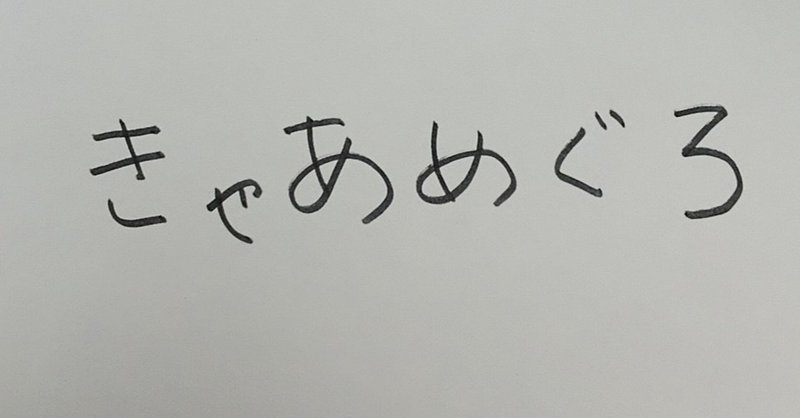 きゃあめぐろ